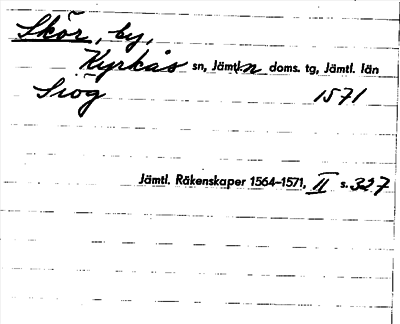 Skör, by,
Kyrkås sn, Jämtl. n doms. tg, Jämtl. län
Siög 1571
Jämtl. Räkenskaper 1564–1571, II s. 327